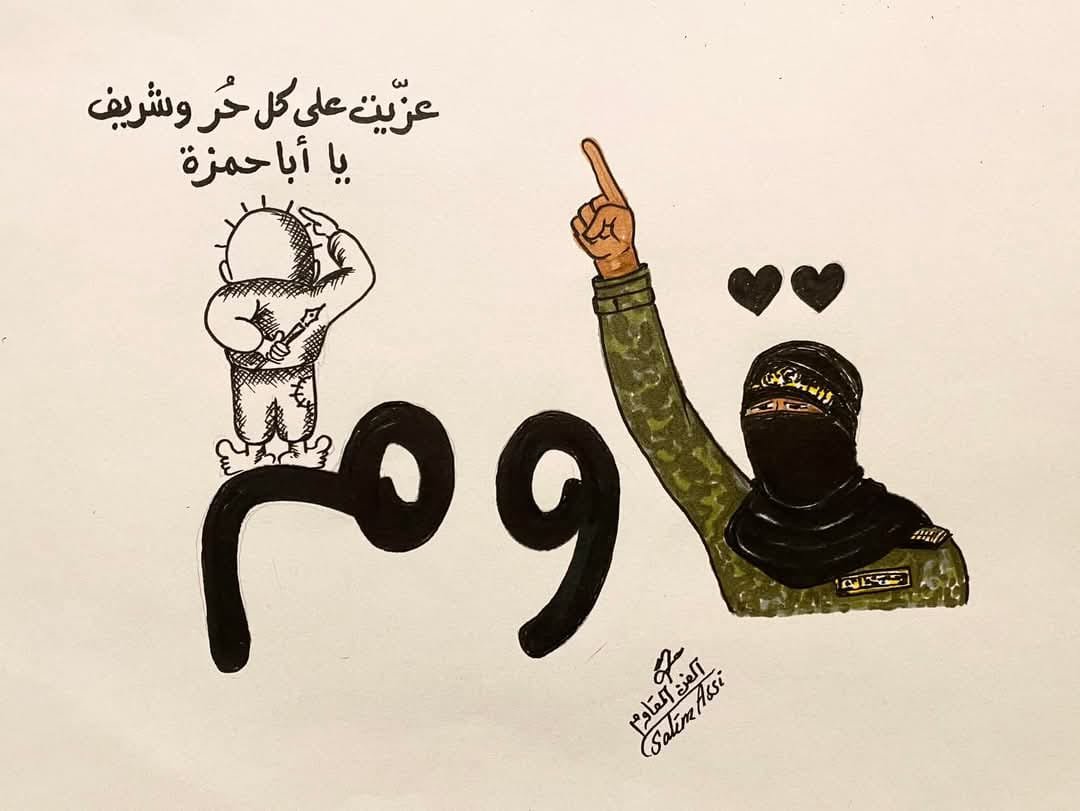 عزّيت على كل حُر وشريف
يا أبا حمزة
قاوم
الفن المقاوم
Salim Assi